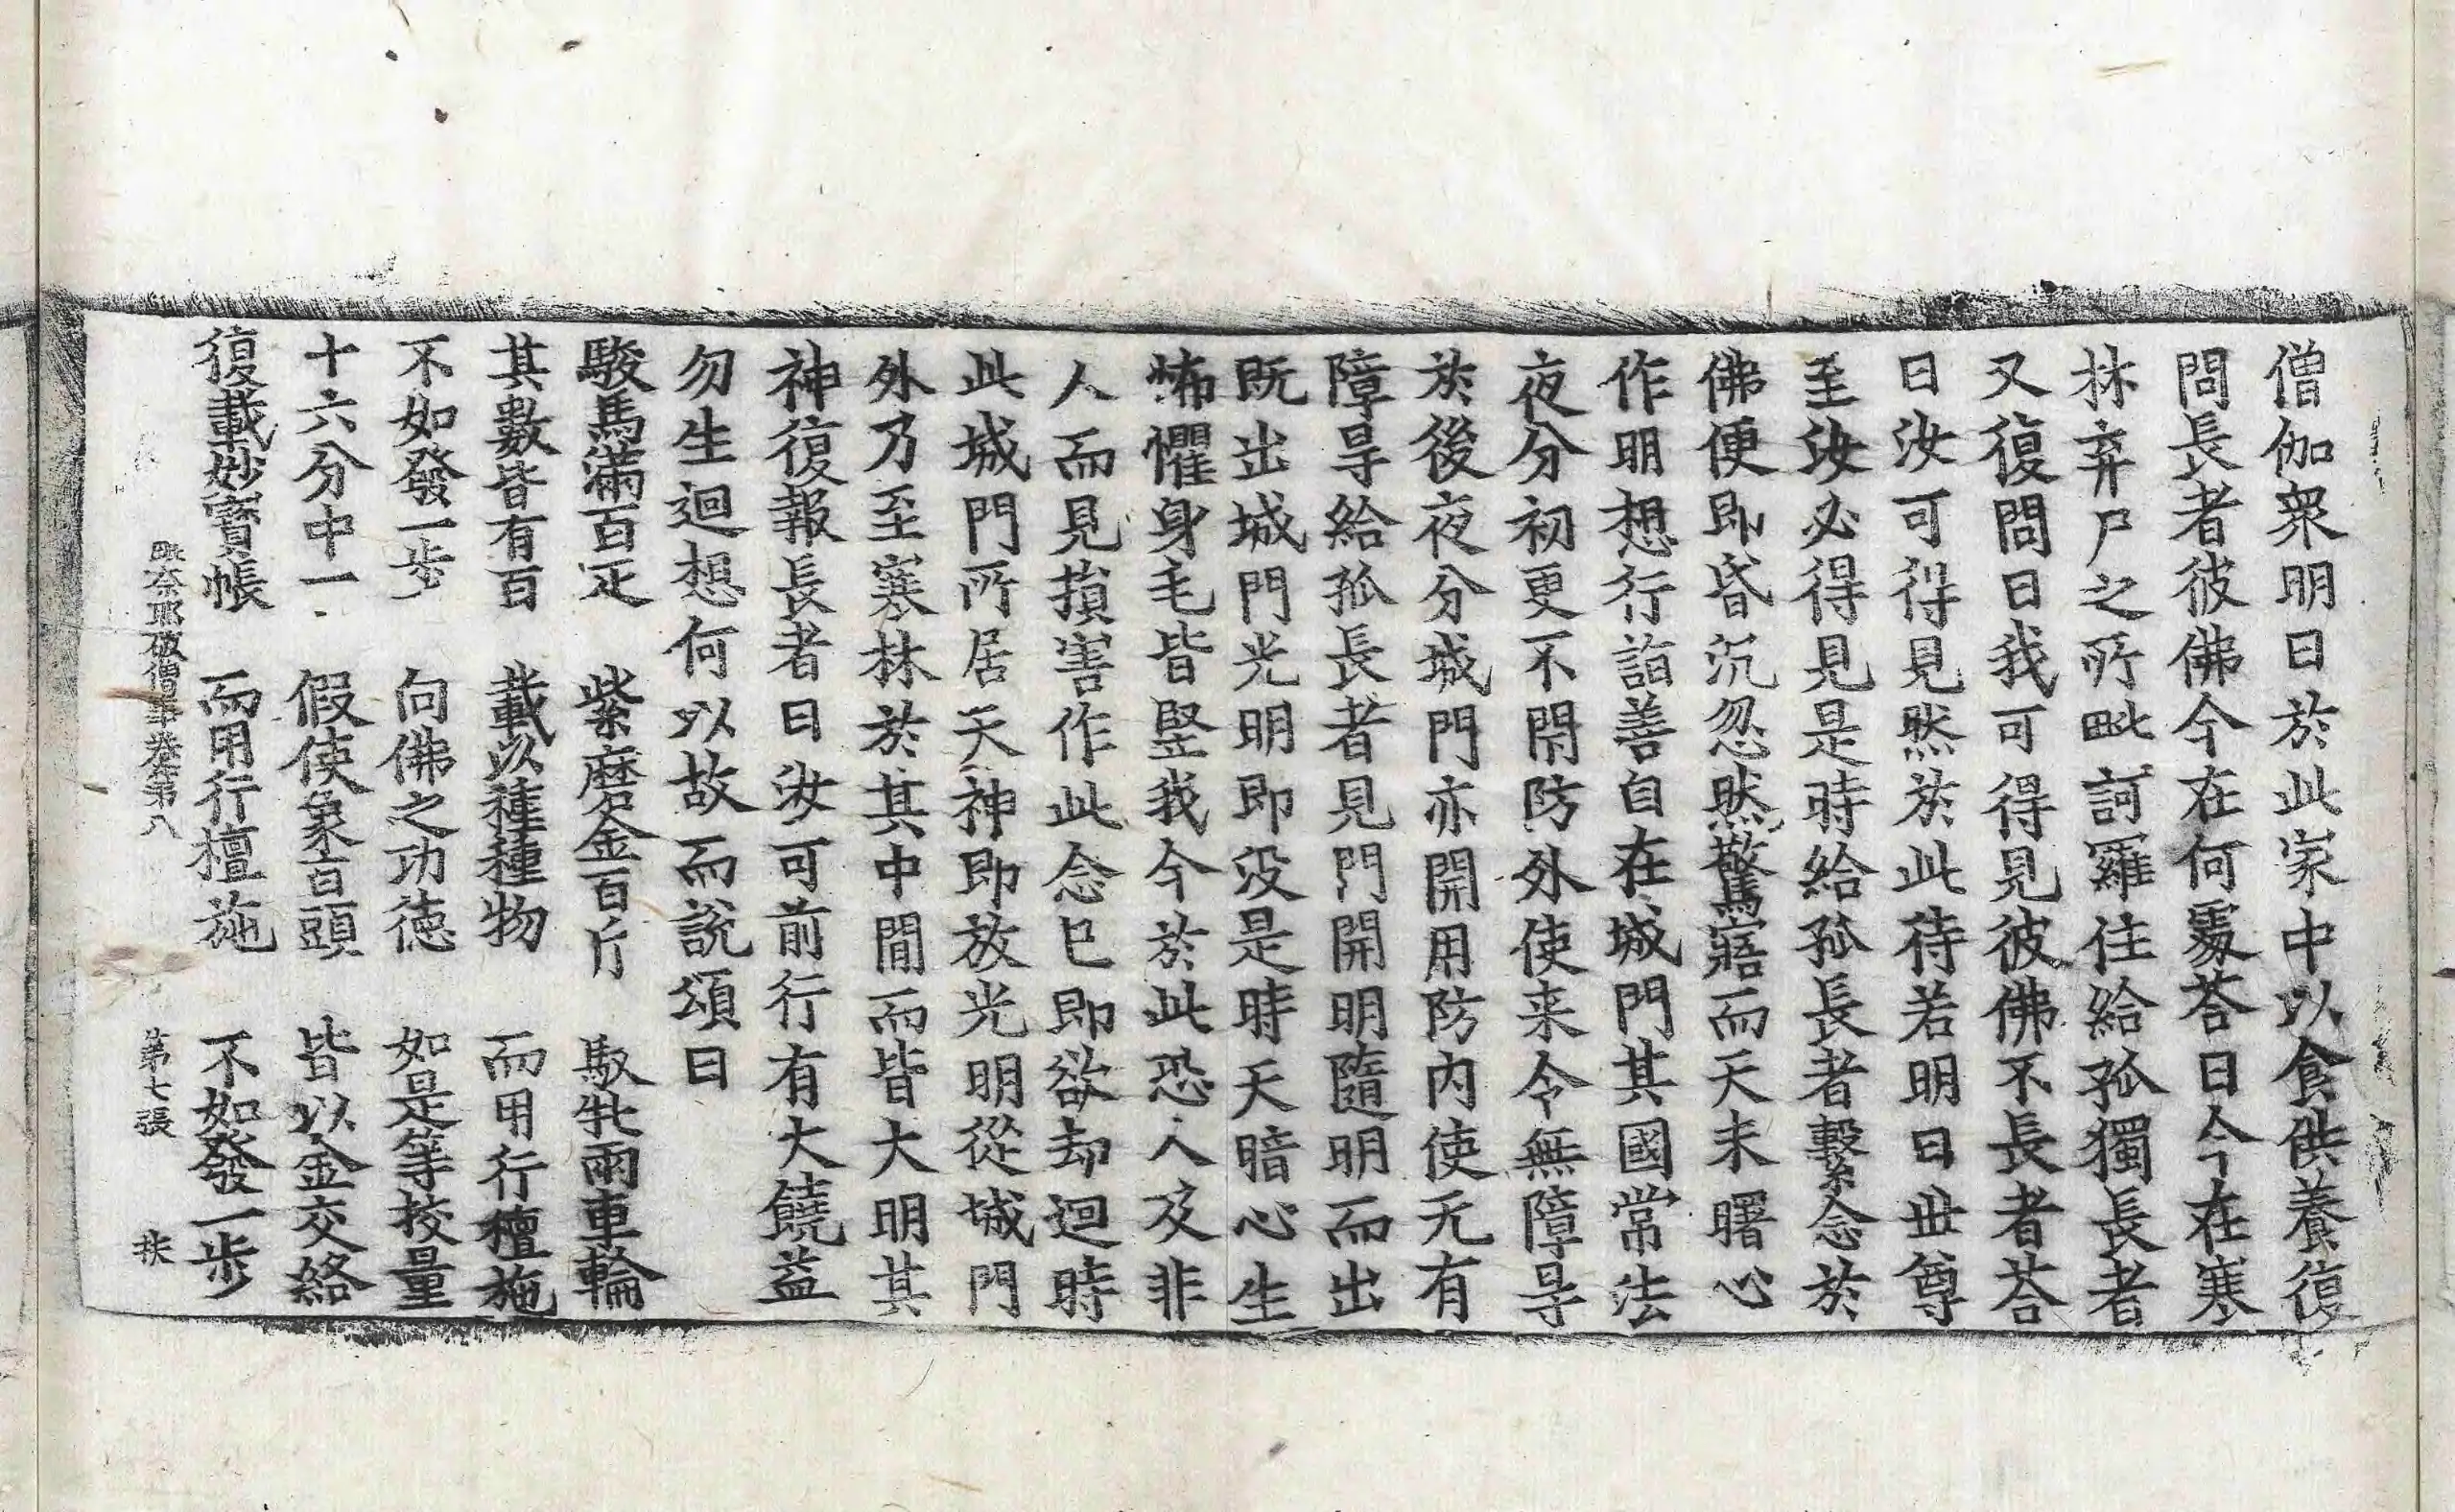 僧伽衆明日於此家中以食供養復
問長者彼佛今在何䖏荅曰今在寒
林弃尸之所毗訶羅住給孤獨長者
又復問曰我可得見彼佛不長者荅
曰汝可得見然於此待若明日世尊
至汝必得見是時給孤長者繫念於
佛便即昏沉忽然驚寤而天未曙心
作明想行詣善自在城門其國常法
夜分初更不閇防外使来令無障㝵
於後夜分城門亦開用防内使无有
障㝵給孤長者見門開明隨明而出
既出城門光明即没是時天暗心生
怖懼身毛皆竪我今於此恐人及非
人而見損害作此念已即欲却迴時
此城門所居天神即放光明從城門
外乃至寒林於其中間而皆大明其
神復報長者曰汝可前行有大饒益
勿生迴想何以故而說頌曰
駿馬滿百疋　紫磨金百斤　馭牝兩車輪
其數皆有百　載以種種物　而用行檀施
不如發一步　向佛之功德　如是等挍量
十六分中一　假使象百頭　皆以金交絡
復載妙寶帳　而用行檀施　不如發一步
毗奈耶破僧事卷第八　第七張　扶